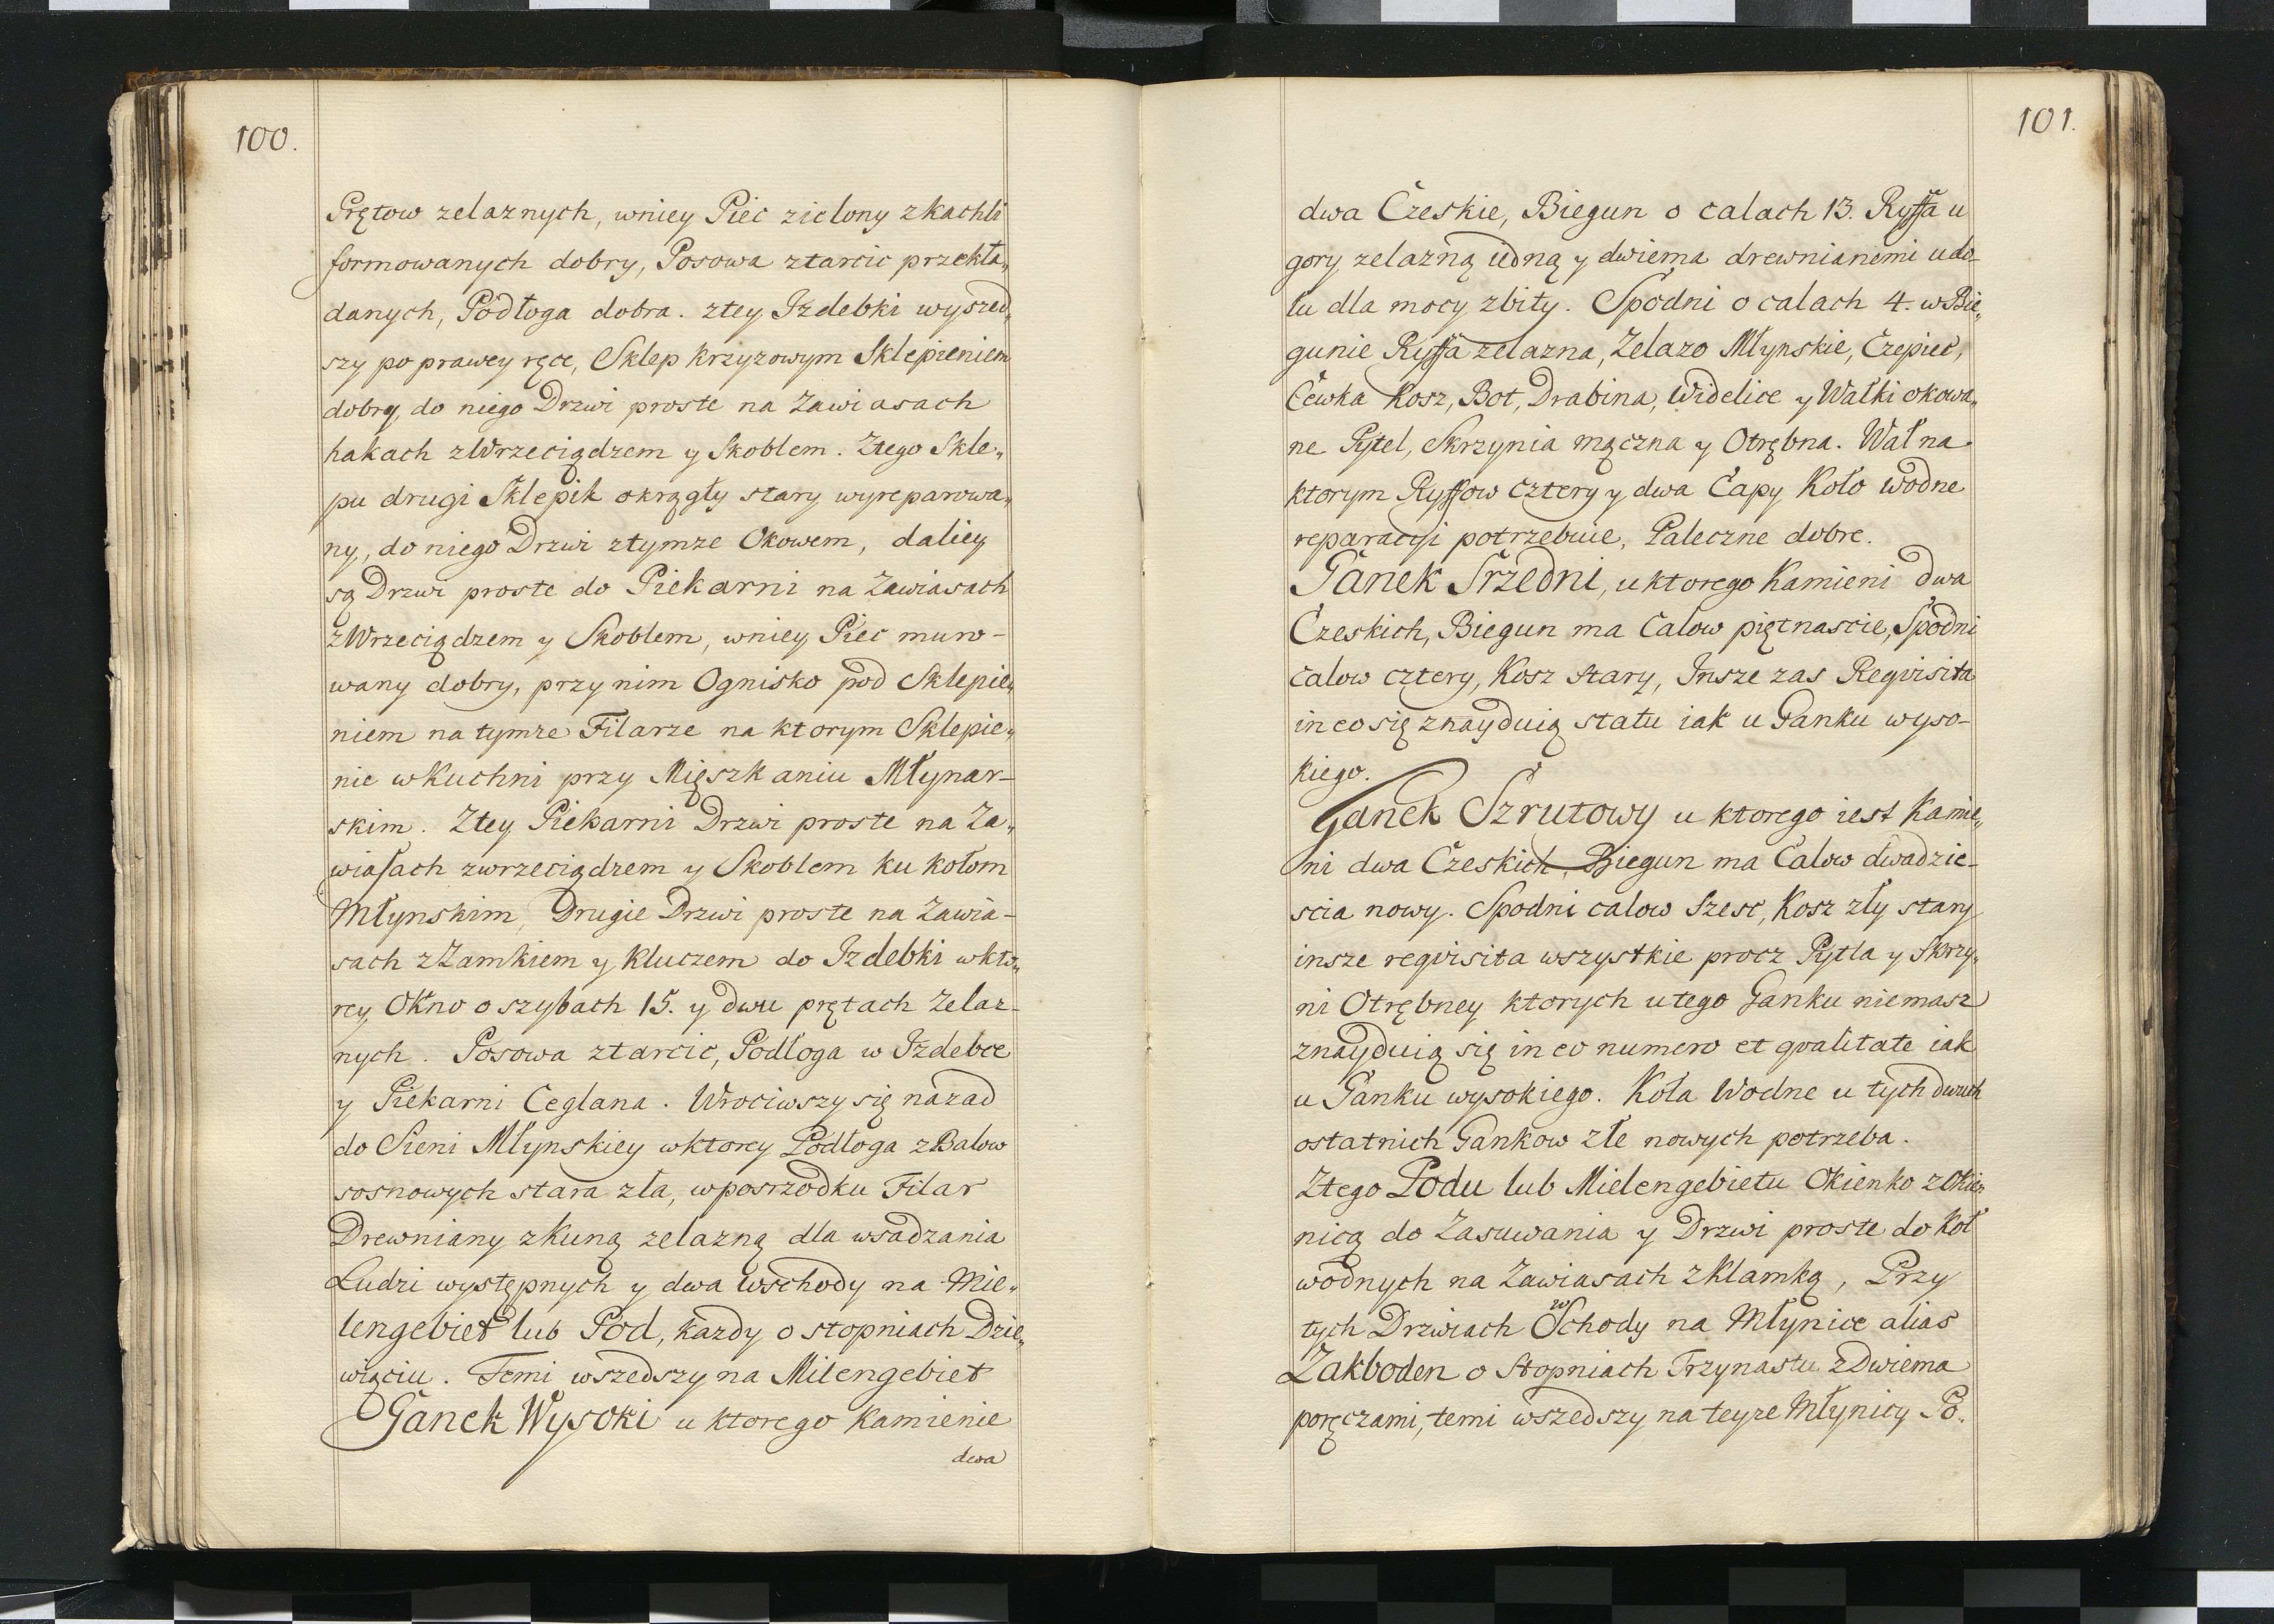 100.
Prętow zelaznych, wniey Piec zielony zkachli
formowanych dobry, Posowa ztarcic przekła„
danych, Podłoga dobra. ztey Izdebki wyszed„
szy po prawey ręce, Sklep krzyzowym Sklepieniem
dobry, do niego Drzwi proste na Zawiasach
hakach zWrzeciądzem y Skoblem. Ztego Skle„
pu drugi Sklepik okrągły stary wyreparowa„
ny, do niego Drzwi ztymze Okowem, daliey
są Drzwi proste do Piekarni na Zawiasach
zWrzeciądzem y Skoblem, wniey Piec muro-
wany dobry, przy nim Ognisko pod Sklepie„
niem na tymze Filarze na ktorym Sklepie„
nie wKuchni przy Mięszkaniu Młynar-
skim. Ztey Piekarni Drzwi proste na Za„
wiasach zwrzeciądzem y Skoblem ku kołom
Młynskim, Drugie Drzwi proste na Zawia-
sach zZamkiem y Kluczem do Izdebki wkto„
rey Okno o szybach 15. y dwu prętach Zelaz-
nych. Posowa ztarcic, Podłoga w Izdebce
y Piekarni Ceglana. Wrociwszy się nazad
do Sieni Młynskiey wktorey Podłoga zBalow
sosnowych stara zła, wposrzodku Filar
Drewniany zkuną zelazną dla wsadzania
Ludzi występnych y dwa wschody na Mie„
lengebiet lub Pod, kazdy o stopniach Dzie„
wiąciu. Temi wszedszy na Milengebiet
Ganek Wysoki u ktorego Kamienie
dwa
101.
dwa Czeskie, Biegun o calach 13. Ryffa u
gory zelazną iedną y dwiema drewnianemi udo-
łu dla mocy zbity. Spodni o calach 4. w Bie„
gunie Ryffa zelazna, Zelazo Młynskie, Czepiec,
Cewka Kosz, Bot, Drabina, Widelice y Wałki okowa„
ne Pytel, Skrzynia mączna y Otrębna. Wał na
ktorym Ryffow cztery y dwa Capy Koło wodne
reparacyi potrzebuie, Paleczne dobre.
Ganek Srzedni, u ktorego Kamieni dwa
Czeskich, Biegun ma Calow piętnascie, Spodni
calow cztery, Kosz stary, Insze zas Reqvisita
in eo się znayduią statu iak u Ganku wyso-
kiego.
Ganek Szrutowy u ktorego iest Kamie„
ni dwa Czeskich, Biegun ma Calow dwadzie-
scia nowy. Spodni calow Szesc, Kosz zły stary
insze reqvisita wszystkie procz Pytla y Skrzy„
ni Otrębney ktorych utego Ganku niemasz
znayduią się in eo numero et qvalitate iak
u Ganku wysokiego. Koła Wodne u tych dwuch
ostatnich Gankow złe nowych potrzeba.
Ztego Podu lub Mielengebietu Okienko zokie„
nicą do Zasuwania y Drzwi proste do Koł
wodnych na Zawiasach zKlamką, Przy
tych Drzwiach wSchody na Młynice alias
Zakboden o Stopniach Trzynastu zDwiema
poręczami, temi wszedszy na teyze Młynicy Po„